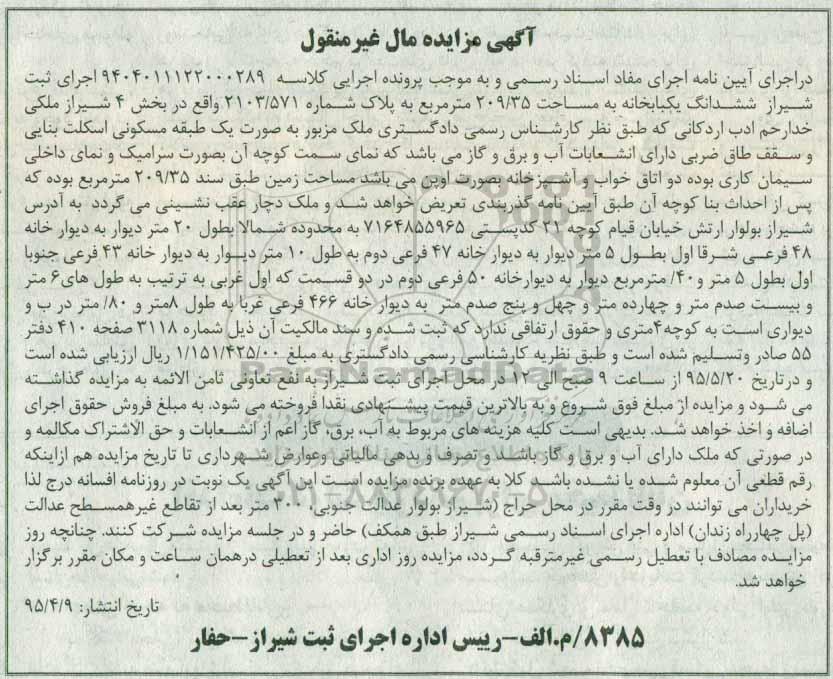 آگهی مزایده مال غیرمنقول
دراجرای آیین نامه اجرای مفاد اسناد رسمی و به موجب پرونده اجرایی کلاسه ۹۴۰۴۰۱۱۱۲۲۰۰۰۲۸۹ اجرای ثبت
شیراز ششدانگ یکبابخانه به مساحت ۲۰۹/۳۵ مترمربع به پلاک شماره ۲۱۰۳/۵۷۱ واقع در بخش ۴ شیراز ملکی
خدارحم ادب اردکانی که طبق نظر کارشناس رسمی دادگستری ملک مزبور به صورت یک طبقه مسکونی اسکلت بنایی
و سقف طاق ضربی دارای انشعابات آب و برق و گاز می باشد که نمای سمت کوچه آن بصورت سرامیک و نمای داخلی
سیمان کاری بوده دو اتاق خواب و آشپزخانه بصورت اوپن می باشد مساحت زمین طبق سند ۲۰۹/۳۵ مترمربع بوده که
پس از احداث بنا کوچه آن طبق آیین نامه گذربندی تعریض خواهد شد و ملک دچار عقب نشینی می گردد به آدرس
شیراز بولوار ارتش خیابان قیام کوچه ۲۱ کدپستی ۷۱۶۴۸۵۵۹۶۵ به محدوده شمالا بطول ۲۰ متر دیوار به دیوار خانه
۴۸ فرعی شرقا اول بطول ۵ متر دیوار به دیوار خانه ۴۷ فرعی دوم به طول ۱۰ متر دیوار به دیوار خانه ۴۳ فرعی جنوبا
اول بطول ۵ متر و۴۰/ مترمربع دیوار به دیوارخانه ۵۰ فرعی دوم در دو قسمت که اول غربی به ترتیب به طول های۶ متر
و بیست صدم متر و چهارده متر و چهل و پنج صدم متر به دیوار خانه ۴۶۶ فرعی غربا به طول ۸متر و ۸۰/ متر در ب و
دیواری است به کوچه۴متری و حقوق ارتفاقی ندارد که ثبت شده و سند مالکیت آن ذیل شماره ۳۱۱۸ صفحه ۴۱۰ دفتر
۵۵ صادر وتسلیم شده است و طبق نظریه کارشناسی رسمی دادگستری به مبلغ ۱/۱۵۱/۴۲۵/۰۰ ریال ارزیابی شده است
و درتاریخ ۹۵/۵/۲۰ از ساعت ۹ صبح الی ۱۲ در محل اجرای ثبت شیراز به نفع تعاونی ثامن الائمه به مزایده گذاشته
می شود و مزایده از مبلغ فوق شروع و به بالاترین قیمت پیشنهادی نقدا فروخته می شود. به مبلغ فروش حقوق اجرای
اضافه و اخذ خواهد شد. بدیهی است کلیه هزینه های مربوط به آب، برق، گاز اعم از انشعابات و حق الاشتراک مکالمه و
در صورتی که ملک دارای آب و برق و گاز باشد و تصرف و بدهی مالیاتی وعوارض شهرداری تا تاریخ مزایده هم ازاینکه
رقم قطعی آن معلوم شده یا نشده باشد کلا به عهده برنده مزایده است این آگهی یک نوبت در روزنامه افسانه درج لذا
خریداران می توانند در وقت مقرر در محل حراج (شیراز بولوار عدالت جنوبی، ۳۰۰ متر بعد از تقاطع غیرهمسطح عدالت
(پل چهارراه زندان) اداره اجرای اسناد رسمی شیراز طبق همکف) حاضر و در جلسه مزایده شرکت کنند. چنانچه روز
مزایده مصادف با تعطیل رسمی غیرمترقبه گردد، مزایده روز اداری بعد از تعطیلی درهمان ساعت و مکان مقرر برگزار
خواهد شد.
تاریخ انتشار: ۹۵/۴/۹
۸۳۸۵/م.الف-رییس اداره اجرای ثبت شیراز-حفار
ParsNamadData